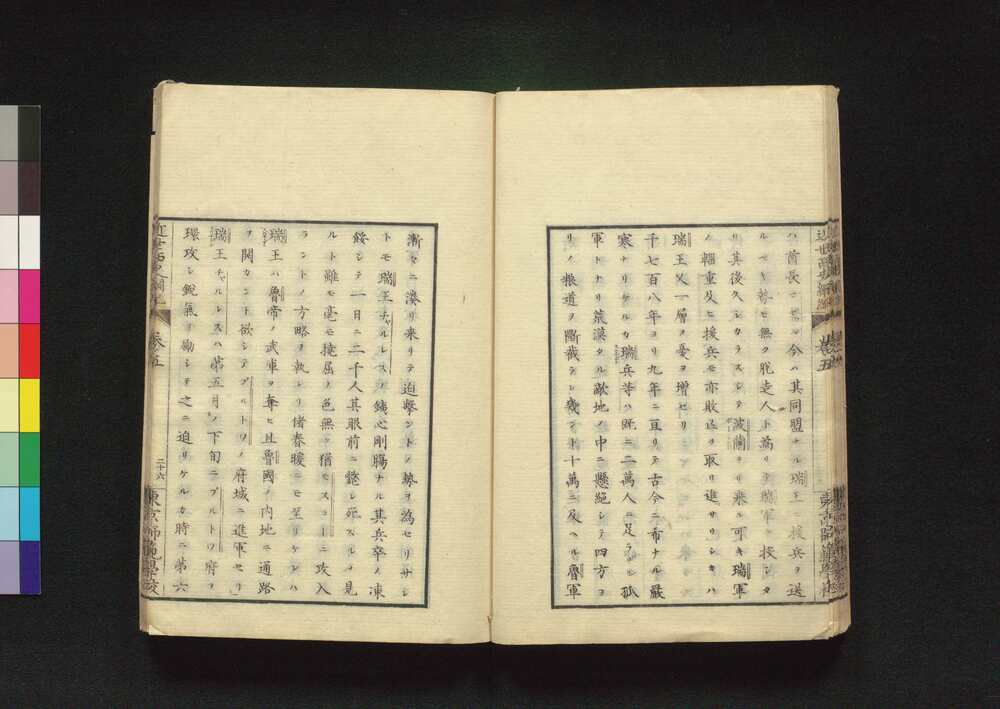 ハ酋長ニ シ今ハ其同盟ナル瑞王 援兵ヲ送
ルベキ勢モ無ク脱走人ト萬 軍 投シタ
リ其後久シカラスシテ波蘭ヨリ來ル可キ瑞軍
ノ輜重及ヒ援兵モ亦敗込ヲ取リ進サリシキハ
瑞王又一層ノ憂ヲ増セリ
千七百八年ヨリ九年ニ亘リテ古今ニ希ナル嚴
寒ナリケルカ瑞兵等ハ既ニ二萬人ニ足ラシ孤
軍トナリ荒漠タル敵地ノ中ニ懸絶シテ四方ヨ
リノ粮道ヲ斷截ラレ幾ント十萬ニ及ヘル魯軍
漸々ニ湊リ来リテ迫撃ントノ勢ヲ為セリサレ
トモ瑞王チャルレスノ鉄心剛腸ナル其兵卒ノ凍
餒シテ一日ニ二千人其眼前ニ斃レ死スルヲ見
ルト雖モ毫モ撓屈ノ色無ク猶モスコーニ攻入
ラントノ方略ヲ執レリ偖春暖ニモ至リケレハ
瑞王ハ魯帝ノ武庫ヲ奪ヒ且魯國ノ内地ニ通路
ヲ開カント欲シテプルトワノ府城ニ進軍セリ
瑞王チャルレスハ第五月ノ下旬ニプルトワ府ヲ
環攻シ銳氣ヲ勵シテ之ニ迫リケルカ時ニ第六
近世西史綱紀
卷五
二十六
東京師範學校